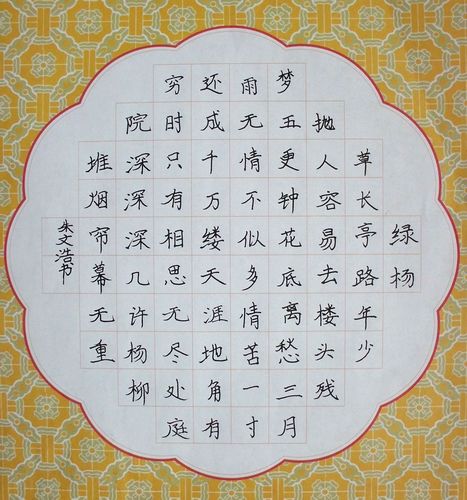 绿杨
草长亭路年少
抛人容易去楼头残
梦五更钟花底离愁三月
雨无情不似多情苦一寸
还成千万缕天涯地角有
穷时只有相思无尽处庭
院深深深几许杨柳
堆烟帘幕无重
朱文浩书